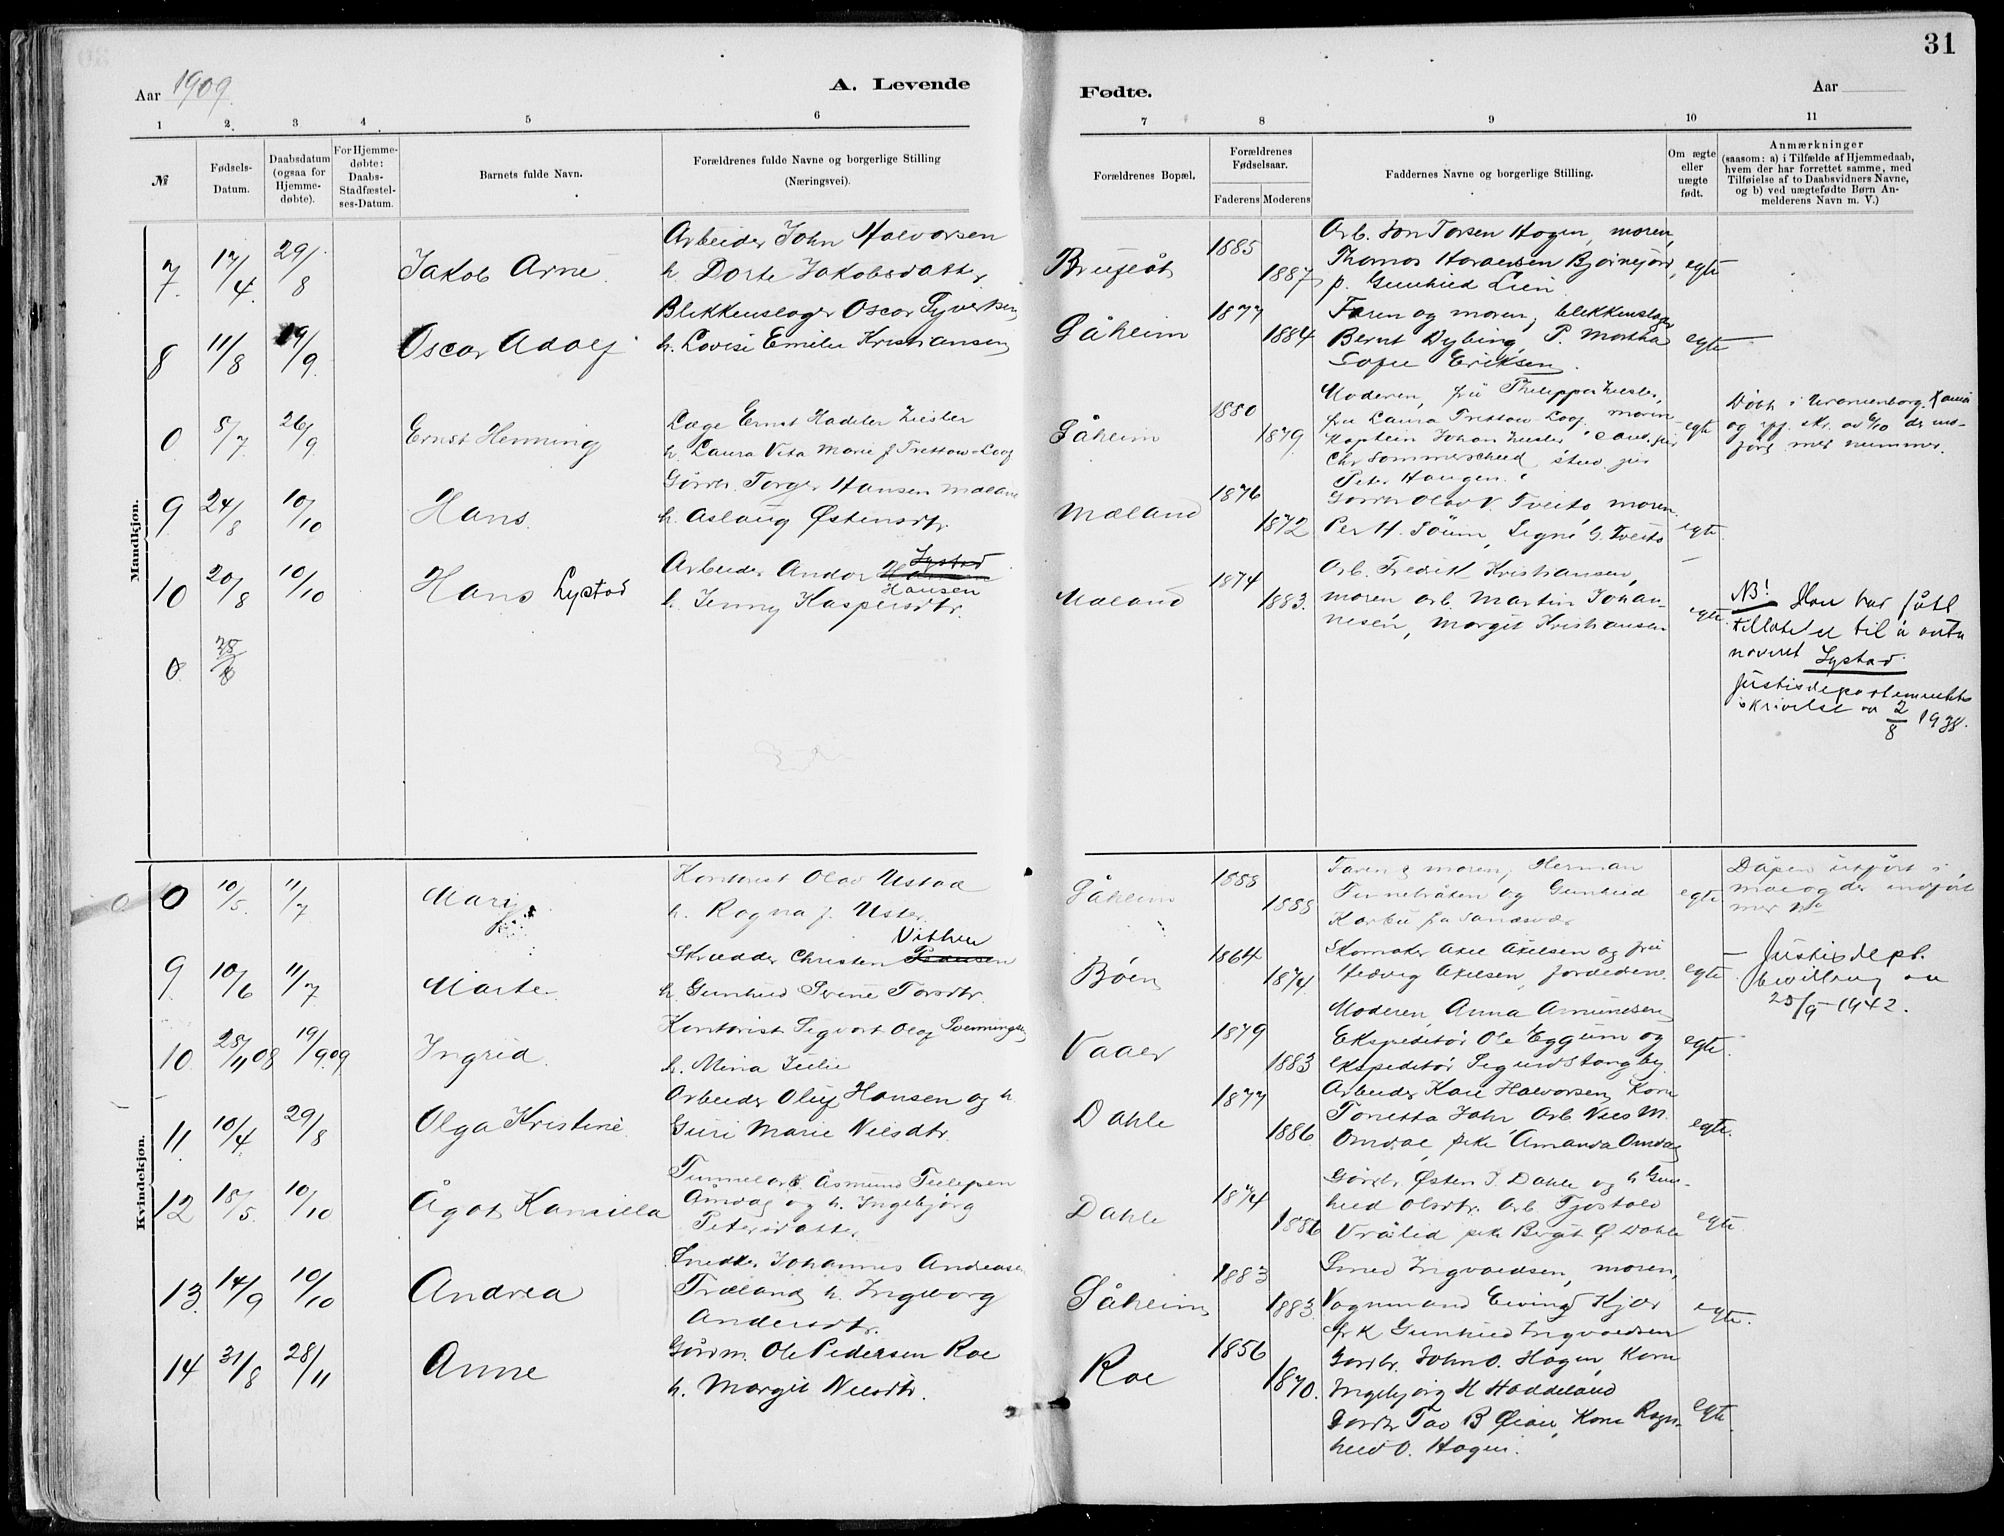 31
Aar 1909.
A. Levende
Fødte.
Aar
1 2. 3 4 5 6 7 8 9 10 11
№
Fødsels-Datum.
Daabsdatum (ogsaa for Hjemme-døbte).
For Hjemme-døbte: Daabs-Stadfæstel-ses-Datum.
Barnets fulde Navn.
Forældrenes fulde Navne og borgerlige Stilling
(Næringsvei).
Forældrenes Bopæl.
Forældrenes Fødselsaar.
Faderens Moderens
Faddernes Navne og borgerlige Stilling.
Om ægte eller uægte født.
Anmærkninger
(saasom: a) i Tilfælde af Hjemmedaab,
hvem der har forrettet samme, med
Tilføielse af to Daabsvidners Navne,
og b) ved uægtefødte Børn An-
melderens Navn m. V.)
Mandkjøn.
7. 17/4. 29/8 Jakob Arne
Arbeider John Halvorsen
h. Dorte Jakobsdatter
1885
1887
Arb. Jon Torsen Hagen, moren,
p. Gunhild Lien
egte
8 11/8 19/9. Oscar Adolf
Blikkenslager Oscar Syvertsen
h. Lovise Emilie Kristiansen
Såheim
1877
1884
Faren og moren, blekkenslager
Bernt Dybing, P. Martha
Sofie Eriksen.
egte
0 5/7 26/9. Ernst Henning
Læge Ernst Hadeler Zeisler
h. Laura Vita Marie f. Trettow-Loof
Såheim
1880
1879
Moderen, frü
fru Laura Trettow Loof, moren
Kaptein Johan
Chr Sommerscheid, stud. jur
Peter Haugen.
egte
Døbt i Uranienborg
9. 24/8 10/10 Hans
Gårdbr. Torger Hansen Mæland
h. Aslaug Østensdtr.
Mæland
1876
1872
Olav V. Tveito moren.
Per H. Söum, Signe G. Tveito
egte.
10 20/8 10/10 Hans Lystad
Arbeider Andor Lystad
Hansen
h. Jenny Kaspersdtr.
Mæland
1874
1883.
Arb. Fredrik Kristiansen,
moren arb. Martin Johan-
nesen, Margit Kristiansen
egte.
NB! Han har fått
tillatelse til å anta
navnet Lystad.
Justisdepartementets
skrivelse av 2/8 1938.
0 25/8
Kvindekjøn.
0 10/5. 11/7 Mari
Kontorist Olav Ustad
h. Ragna f. Uster
Såheim
1888
1888
Faren & moren, Herman
Tinnebråten og Gunhild
Karbu fra Sandsvær
egte
Dåpen utført i
Mæl og der indført
9. 10/6 11/7 Marte
Vithen
Skrædder Christen
h. Gunhild Serine Torsdtr.
Bøen
1864
1874.
Skomaker Axel Axelsen og frü
Hedvig Axelsen, forældrene
egte
Justisdept.
bevilling av
25/9-1942.
10 25/11 08 19/9 09 Ingrid.
Kontorist Sigvart Olaf Svenningsen
h. Mina Julie
Vaaer
1879
1883
Moderen, Anna Amundsen
Ekspeditør Ole Eggum og
ekspeditör Sigurd Stangby.
egte.
11. 10/4. 29/8 Olga Kristine
Arbeider Oluf Hansen og h.
Guri Marie Nilsdtr.
Dahle
1877
1886
Arbeider Kare Halvorsen, Kone
Tonetta Jahr Arb. Niels M.
Omdal, pike Amanda Omdal
egte.
12 15/5. 10/10 Ågot Kamilla
Tunnelarb. Åsmund Tellefsen
Åmdal og h. Ingebjørg
Petersdatter
Dahle
1874
1886
Gårdbr. Østen J. Dahle og h Gun-
hild Olsdtr. Arb. Fjostold
Vrålid pike Bergit Ø. Dahle
egte.
13. 14/9 10/10 Andrea
Snedker Johannes Andreasen
Træland h. Ingeborg
Andersdtr.
Såheim
1883
1883.
Smed Ingvaldsen, moren,
Vognmand Eivind Kjær
frk Gunhild Ingvaldsen
egte.
14 31/8 28/11 Anne
Gårdm. Ole Pedersen Roe
h. Margit Nilsdtr.
Roe
1856
1870.
Gardbr. John O. Hagen, Kone
Ingebjørg H Haddeland
Gardbr Tov B Øian, Kone Ragn-
hild O. Hagen.
egte